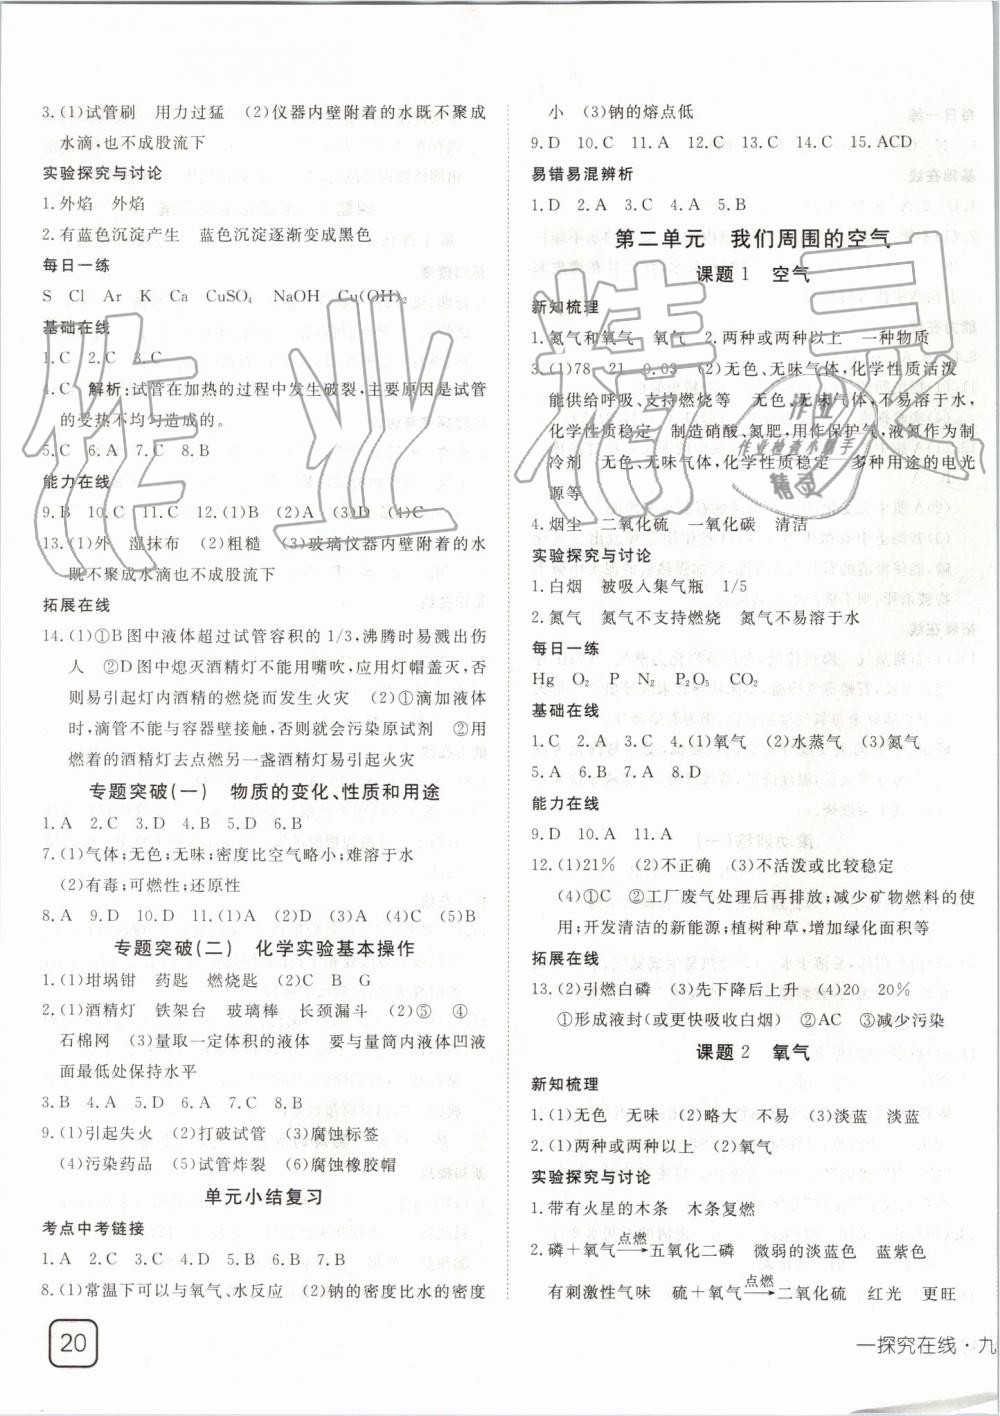 3.(1)试管刷　用力过猛　(2)仪器内壁附着的水既不聚成
水滴,也不成股流下
实验探究与讨论
1.外焰　外焰
2.有蓝色沉淀产生　蓝色沉淀逐渐变成黑色
每日一练
S　Cl　Ar　K　Ca　CuSO₄　NaOH　Cu(OH)₂
基础在线
1.C　2.C　3.C
4.C　解析:试管在加热的过程中发生破裂,主要原因是试管
的受热不均匀造成的。
5.C　6.A　7.C　8.B
能力在线
9.B　10.C　11.C　12.(1)B　(2)A　(3)D　(4)C
13.(1)外　湿抹布　(2)粗糙　(3)玻璃仪器内壁附着的水
既不聚成水滴也不成股流下
拓展在线
14.(1)①B图中液体超过试管容积的1/3,沸腾时易溅出伤
人　②D图中熄灭酒精灯不能用嘴吹,应用灯帽盖灭,否
则易引起灯内酒精的燃烧而发生火灾　(2)①滴加液体
时,滴管不能与容器壁接触,否则就会污染原试剂　②用
燃着的酒精灯去点燃另一盏酒精灯易引起火灾
专题突破(一)　物质的变化、性质和用途
1.A　2.C　3.D　4.B　5.D　6.B
7.(1)气体;无色;无味;密度比空气略小;难溶于水
(2)有毒;可燃性;还原性
8.A　9.D　10.D　11.(1)A　(2)D　(3)A　(4)C　(5)B
专题突破(二)　化学实验基本操作
1.(1)坩埚钳　药匙　燃烧匙　(2)C　B　G
2.(1)酒精灯　铁架台　玻璃棒　长颈漏斗　(2)⑤　④
石棉网　(3)量取一定体积的液体　要与量筒内液体凹液
面最低处保持水平
3.B　4.A　5.D　6.A　7.C　8.B
9.(1)引起失火　(2)打破试管　(3)腐蚀标签
(4)污染药品　(5)试管炸裂　(6)腐蚀橡胶帽
单元小结复习
考点中考链接
1.A　2.C　3.C　4.D　5.B　6.B　7.B
8.(1)常温下可以与氧气、水反应　(2)钠的密度比水的密度
20
小　(3)钠的熔点低
9.D　10.C　11.A　12.C　13.C　14.C　15.ACD
易错易混辨析
1.D　2.A　3.C　4.A　5.B
第二单元　我们周围的空气
课题1　空气
新知梳理
1.氮气和氧气　氧气　2.两种或两种以上　一种物质
3.(1)78　21　0.03　(2)无色、无味气体,化学性质活泼
能供给呼吸、支持燃烧等　无色、无味气体,不易溶于水,
化学性质稳定　制造硝酸、氮肥,用作保护气,液氮作为制
冷剂　无色、无味气体,化学性质稳定　多种用途的电光
源等
4.烟尘　二氧化硫　一氧化碳　清洁
实验探究与讨论
1.白烟　被吸入集气瓶　1/5
2.氮气　氮气不支持燃烧　氮气不易溶于水
每日一练
Hg　O₂　P　N₂　P₂O₅　CO₂
基础在线
1.C　2.A　3.C　4.(1)氧气　(2)水蒸气　(3)氮气
5.A　6.B　7.A　8.D
能力在线
9.D　10.A　11.A
12.(1)21%　(2)不正确　(3)不活泼或比较稳定
(4)①C　②工厂废气处理后再排放;减少矿物燃料的使
用;开发清洁的新能源;植树种草,增加绿化面积等
拓展在线
13.(2)引燃白磷　(3)先下降后上升　(4)20　20%
①形成液封(或更快吸收白烟)　②AC　③减少污染
课题2　氧气
新知梳理
1.(1)无色　无味　(2)略大　不易　(3)淡蓝　淡蓝
2.(1)两种或两种以上　(2)氧气
实验探究与讨论
1.带有火星的木条　木条复燃
2.磷+氧气 点燃→ 五氧化二磷　微弱的淡蓝色　蓝紫色
有刺激性气味　硫+氧气 点燃→ 二氧化硫　红光　更旺
一探究在线·九
作业精灵
作业
作业检查小助手
精灵